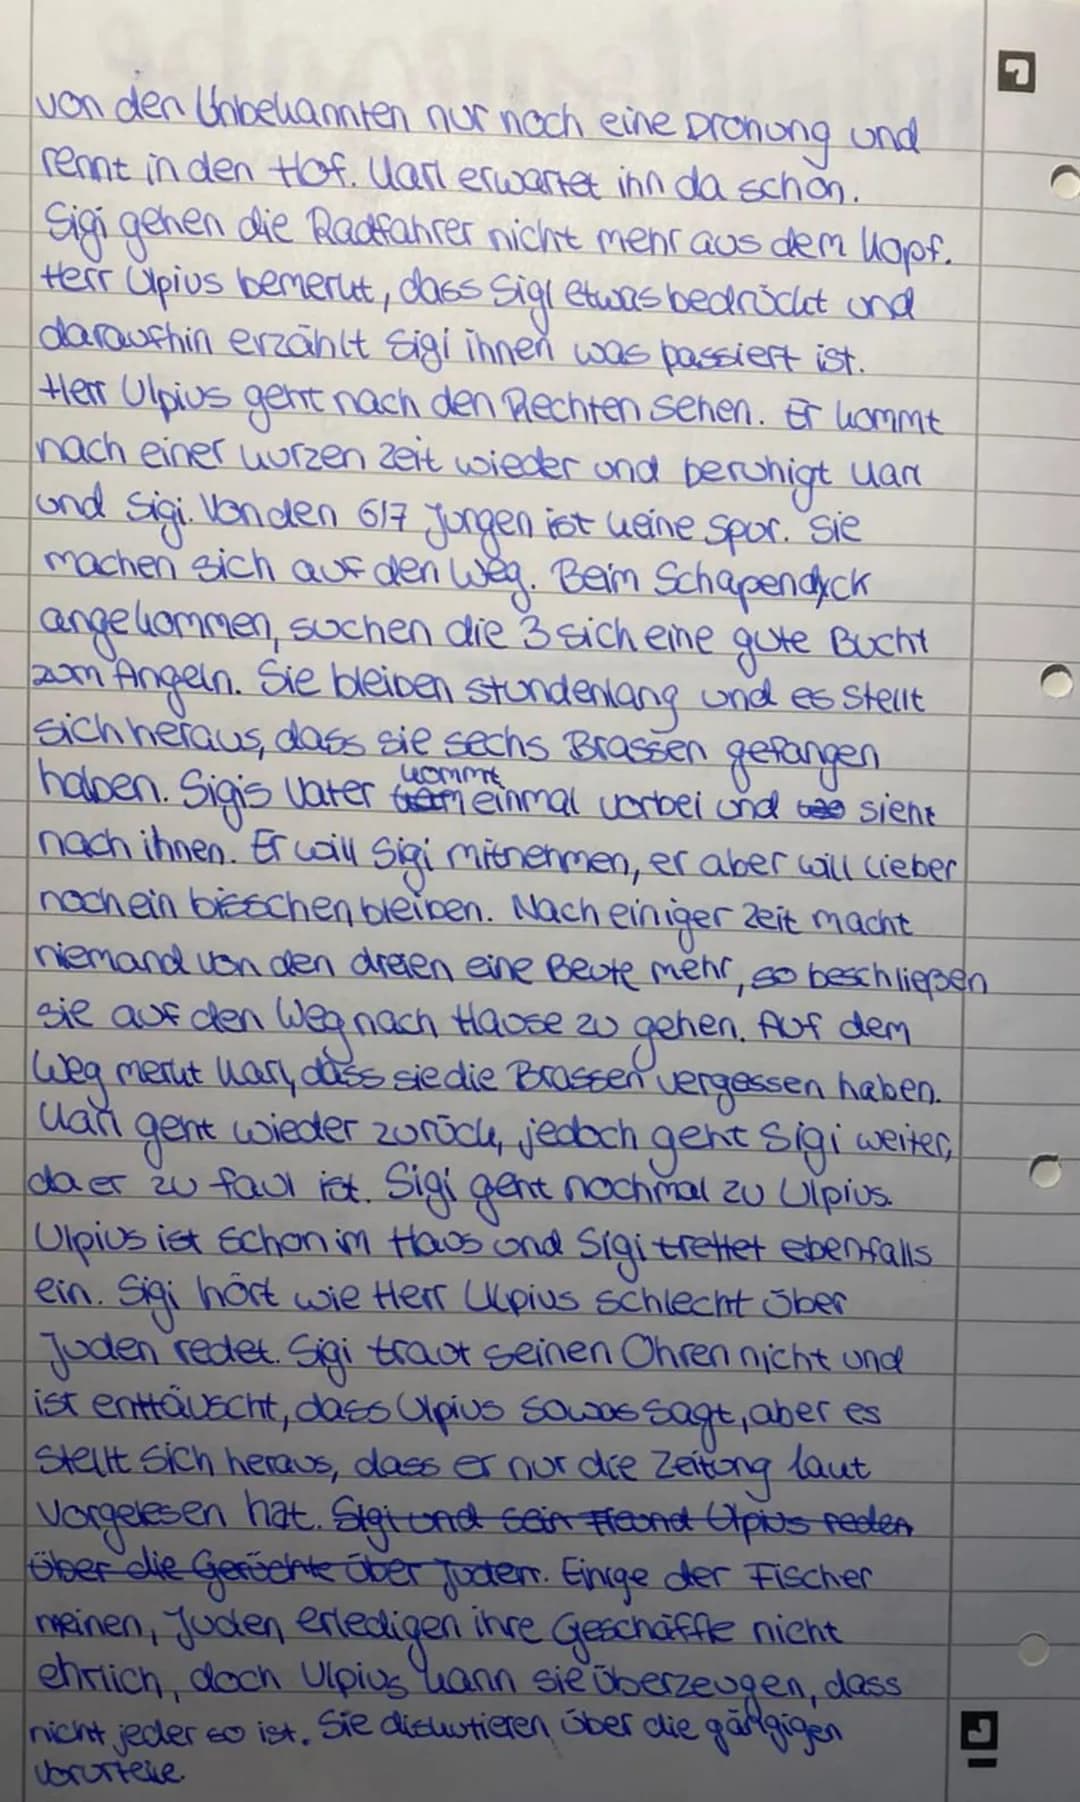 von den Unbekannten nur noch eine Drohung und
rennt in den Hof. Karl erwartet ihn da schon.
Sigi gehen die Radfahrer nicht mehr aus dem Kopf.
Herr Ulpius bemerkt, dass Sigi etwas bedrückt und
daraufhin erzählt Sigi ihnen was passiert ist.
Herr Ulpius geht nach den Rechten sehen. Er kommt
nach einer kurzen Zeit wieder und beruhigt Karl
und Sigi. Von den 6/7 Jungen ist keine Spur. Sie
machen sich auf den Weg. Beim Schapendyck
angekommen, suchen die 3 sich eine gute Bucht
zum Angeln. Sie bleiben stundenlang und es stellt
sich heraus, dass sie sechs Brassen gefangen
haben. Sigis Vater kommt einmal vorbei und sieht
nach ihnen. Er will Sigi mitnehmen, er aber will lieber
noch ein bisschen bleiben. Nach einiger Zeit macht
niemand von den dreien eine Beute mehr, so beschließen
sie auf den Weg nach Hause zu gehen. Auf dem
Weg merkt Karl, dass sie die Brassen vergessen haben.
Karl geht wieder zurück, jedoch geht Sigi weiter,
da er zu faul ist. Sigi geht nochmal zu Ulpius.
Ulpius ist schon im Haus und Sigi trettet ebenfalls
ein. Sigi hört wie Herr Ulpius schlecht über
Juden redet. Sigi traut seinen Ohren nicht und
ist enttäuscht, dass Ulpius sowas sagt, aber es
stellt sich heraus, dass er nur die Zeitung laut
vorgelesen hat. Sigi und sein Freund Ulpius reden
über die Gerüchte über Juden. Einige der Fischer
meinen, Juden erledigen ihre Geschäfte nicht
ehrlich, doch Ulpius kann sie überzeugen, dass
nicht jeder so ist. Sie diskutieren über die gängigen
Vorurteile.